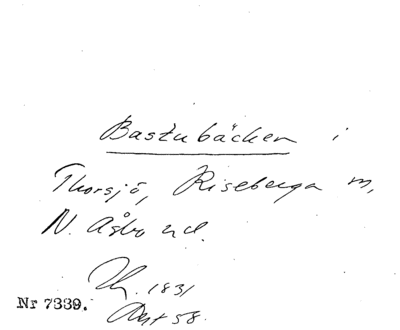 Bastubäcken i
Thorsjö, Riseberga m,
N. Åsbo hd.
1831
Akt 58.
Nr 7339.